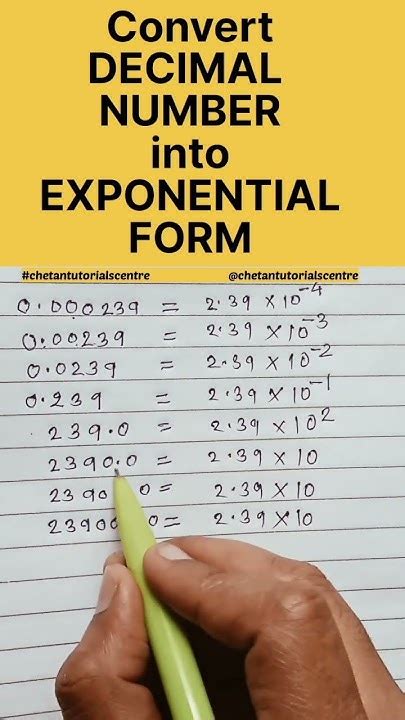 Convert
DECIMAL
NUMBER
into
EXPONENTIAL
FORM
#chetantutorialscentre @chetantutorialscentre
0.000239 = 2.39 × 10⁻⁴
0.00239 = 2.39 × 10⁻³
0.0239 = 2.39 × 10⁻²
0.239 = 2.39 × 10⁻¹
239.0 = 2.39 × 10²
2390.0 = 2.39 × 10
= 2.39 × 10
= 2.39 × 10